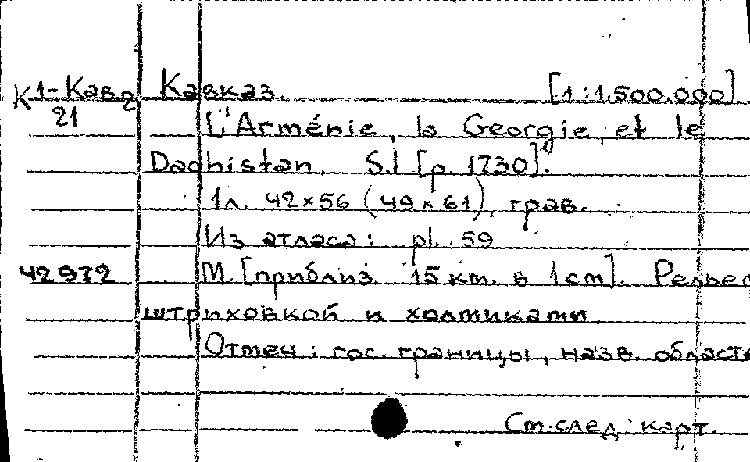 К 1-Кав. 2 Кавказ. [1:1.500.000]
21 L'Arménie, la Georgie et le
Daghistan. S.l [p. 1730]¹⁾.
1л. 42×56 (49×61), грав.
Из атласа: pl. 59
42972 М. [приблиз. 15 км. в 1 см]. Рельеф
штриховкой и холмиками
Отмеч: гос. границы, назв. областе
См. след. карт.